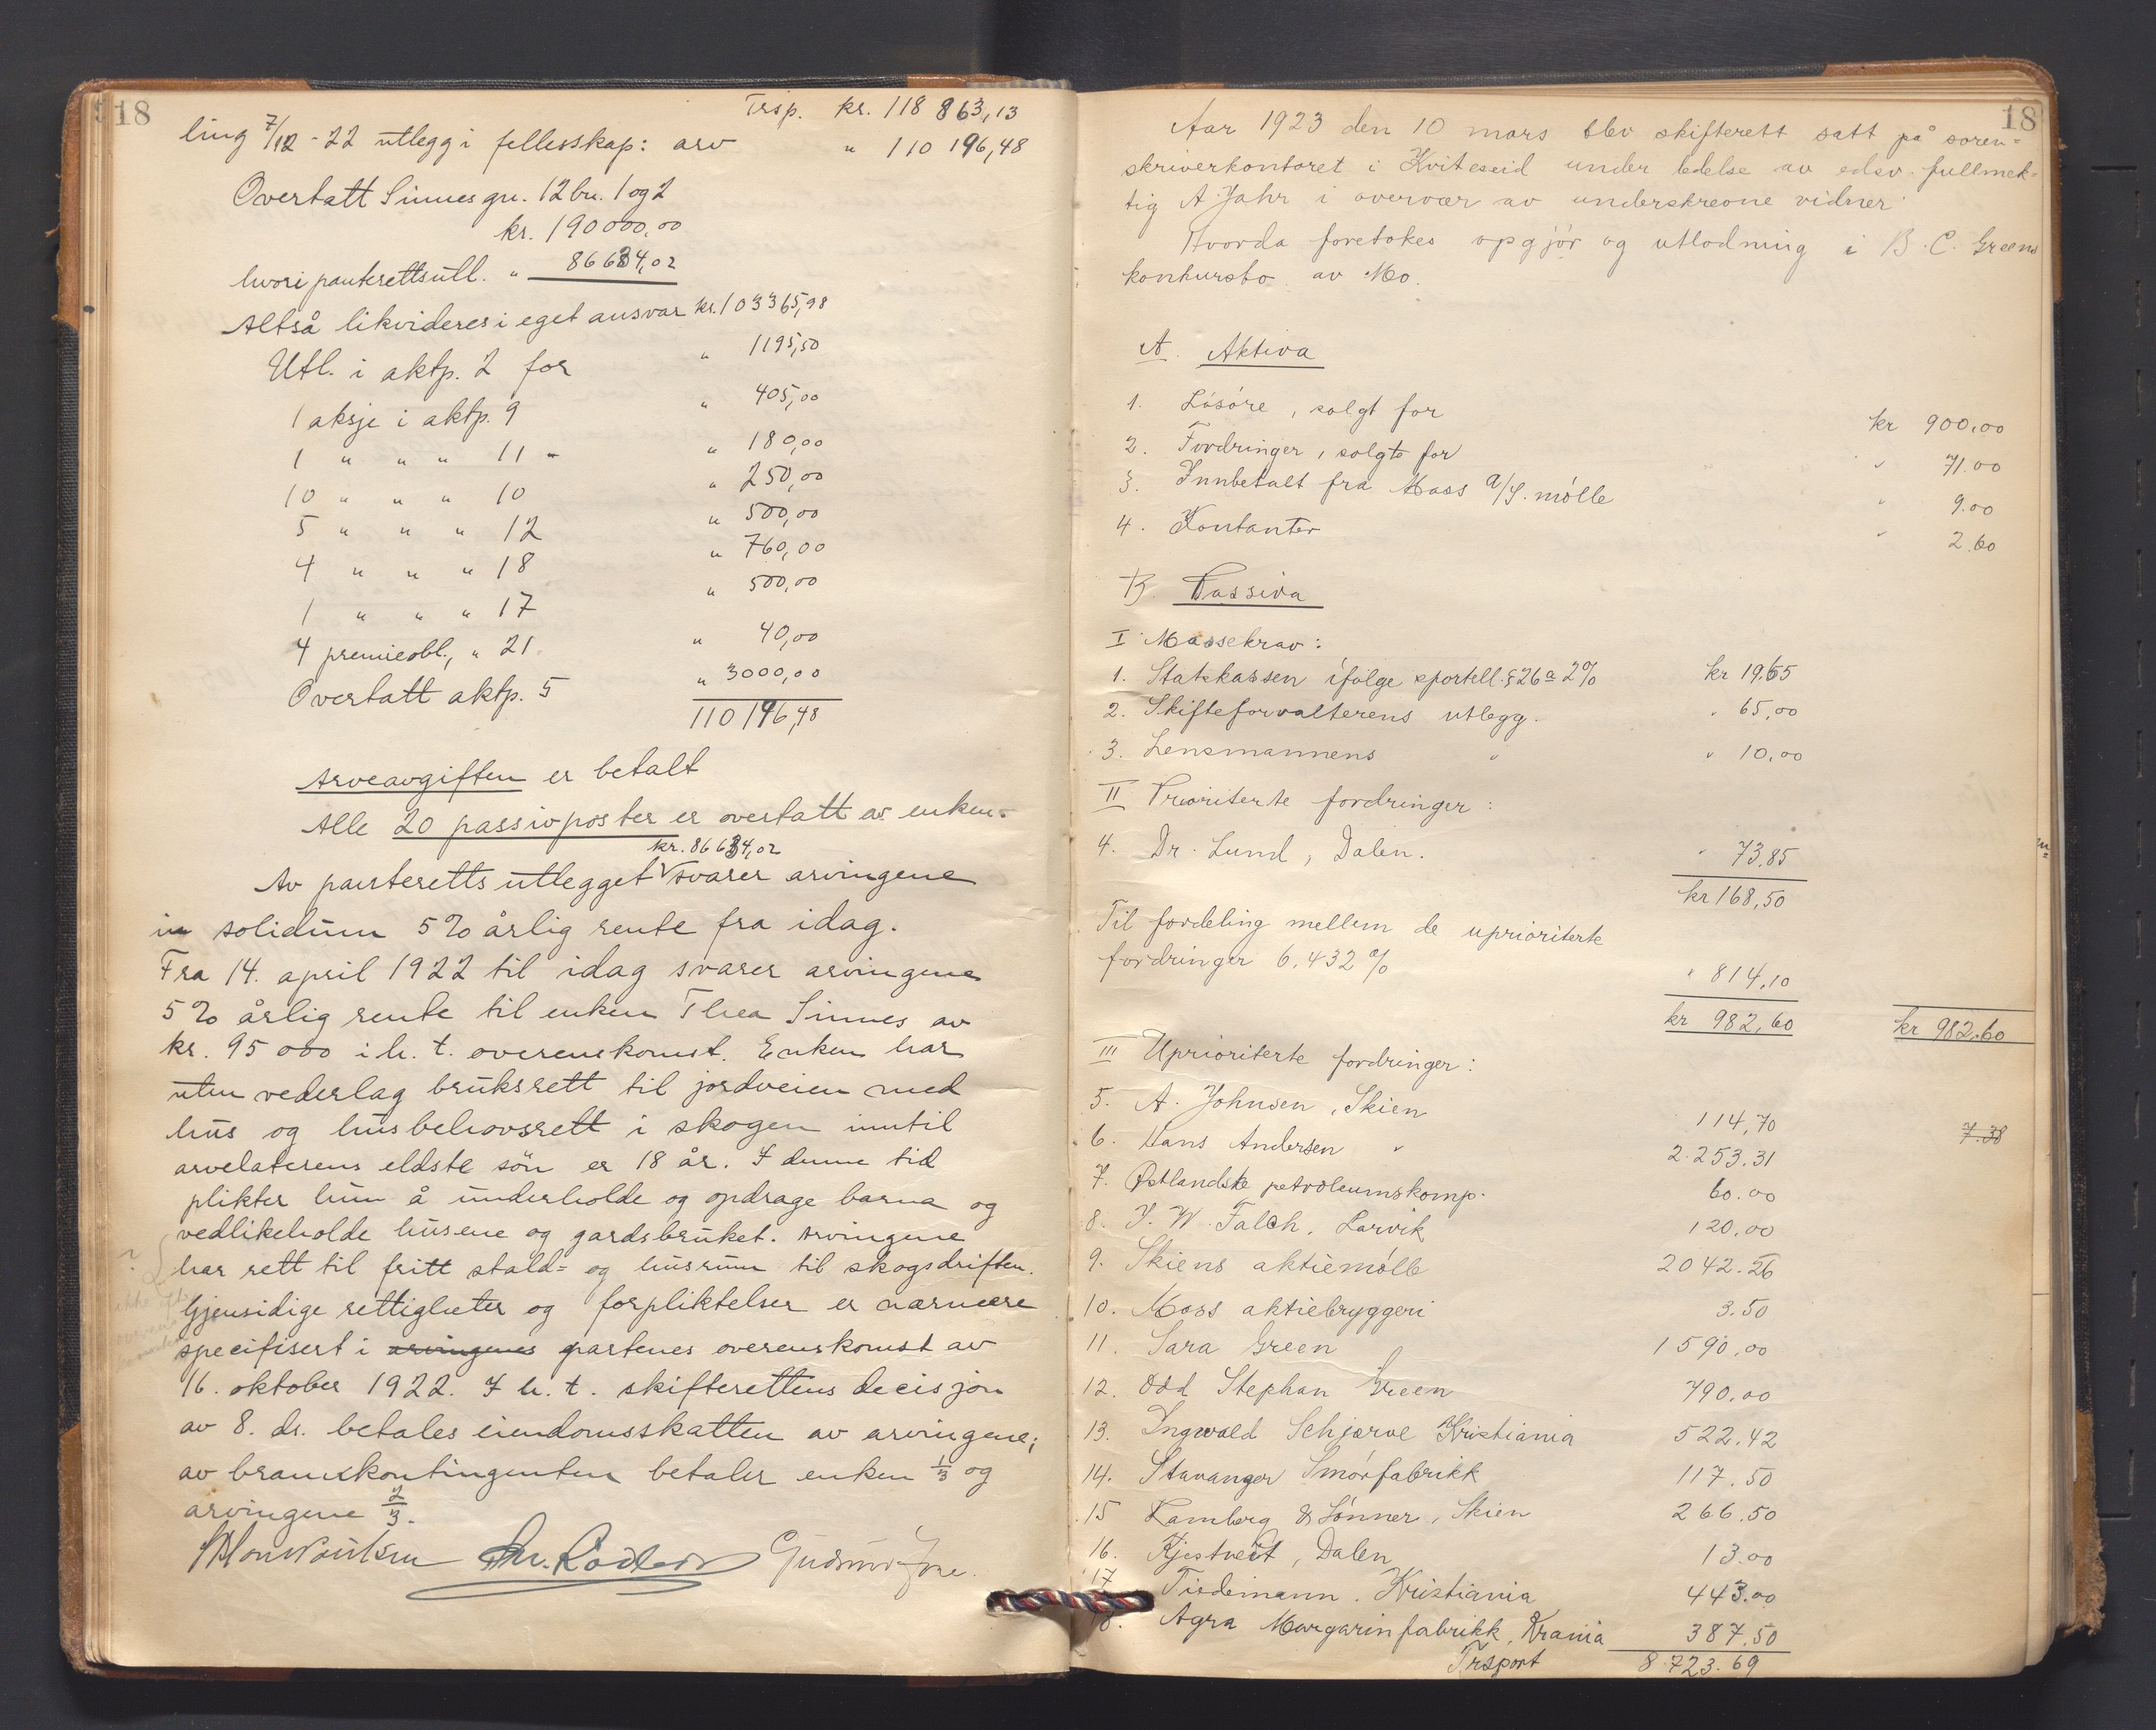 18
Trsp. kr. 118 863,13
ling 7/12 - 22 utlegg i fellesskap: arv " 110 196,48
Overtatt Sinnes gn. 12 bn. 1 og 2
kr. 190000,00
hvori panterettsutl. " 86634,02
Altså likvideres i eget ansvar kr. 103365,98
Utl. i aktp. 2 for " 1195,50
1 aksje i aktp. 9 " 405,00
1 " " " 11 - " 180,00
10 " " " 10 " 250,00
5 " " " 12 " 500,00
4 " " " 18 " 760,00
1 " " " 17 " 500,00
4 premieobl., " 21 " 40,00
Overtatt aktp. 5 " 3000,00
110 196,48
Arveavgiften er betalt
Alle 20 passivposter er overtatt av enken.
kr. 86634,02
Av panteretts utlegget svarer arvingene
in solidum 5% årlig rente fra idag.
Fra 14. april 1922 til idag svarer arvingene
5% årlig rente til enken Thea Sinnes av
kr. 95 000 i h. t. overenskomst. Enken har
uten vederlag bruksrett til jordveien med
hus og husbehovsrett i skogen inntil
arvelaterens eldste sön er 18 år. I denne tid
plikter hun å underholde og opdrage barna og
vedlikeholde husene og gardsbruket. Arvingene
har rett til fritt stald= og husrum til skogsdriften.
Gjensidige rettigheter og forpliktelser er nærmere
specifisert i arvingenes partenes overenskomst av
16. oktober 1922. I h. t. skifterettens decisjon
av 8. ds. betales eiendomsskatten av arvingene;
av brandkontingenten betaler enken 1/3 og
arvingene 2/3.
18
Aar 1923 den 10 mars blev skifterett satt på soren=
skriverkontoret i Kviteseid under ledelse av edsv. fullmek=
tig A. Jahr i overvær av underskrevne vidner
Hvorda foretokes opgjör og utlodning i B. C. Greens
konkursbo av Mo.
A. Aktiva
1. Lösöre, solgt for kr 900,00
2. Fordringer, solgte for " 71.00
3. Innbetalt fra Moss A/S. mölle " 9.00
4. Kontanter " 2.60
B. Passiva
I Massekrav:
1. Statskassen ifölge sportell. § 26 a 2% kr 19,65
2. Skifteforvalterens utlegg. " 65,00
3. Lensmannens " " 10,00
II Prioriterte fordringer:
4. Dr. Lund, Dalen. " 73,85
kr 168,50
Til fordeling mellem de uprioriterte
fordringer 6,432 % " 814,10
kr 982,60 kr 982.60
III Uprioriterte fordringer:
5. A. Johnsen, Skien 114,70 7.38
6. Hans Andersen " 2.253.31
7. Østlandske petroleumskomp. 60.00
8. J. W. Falch, Larvik 120,00
9. Skiens aktiemölle 2042.26
10. Moss aktiebryggeri 3.50
11. Sara Green 1590,00
12. Odd Stephan Green 790.00
13. Ingvald Schjærve Kristiania 522.42
14. Stavanger Smörfabrikk 117.50
15 Ramberg & Sönner, Skien 266.50
16. Kjestveit, Dalen 13.00
17 Tiedemann. Kristiania 443.00
18. Agra Margarinfabrikk, Krania 387,50
Trsport 8.723.69